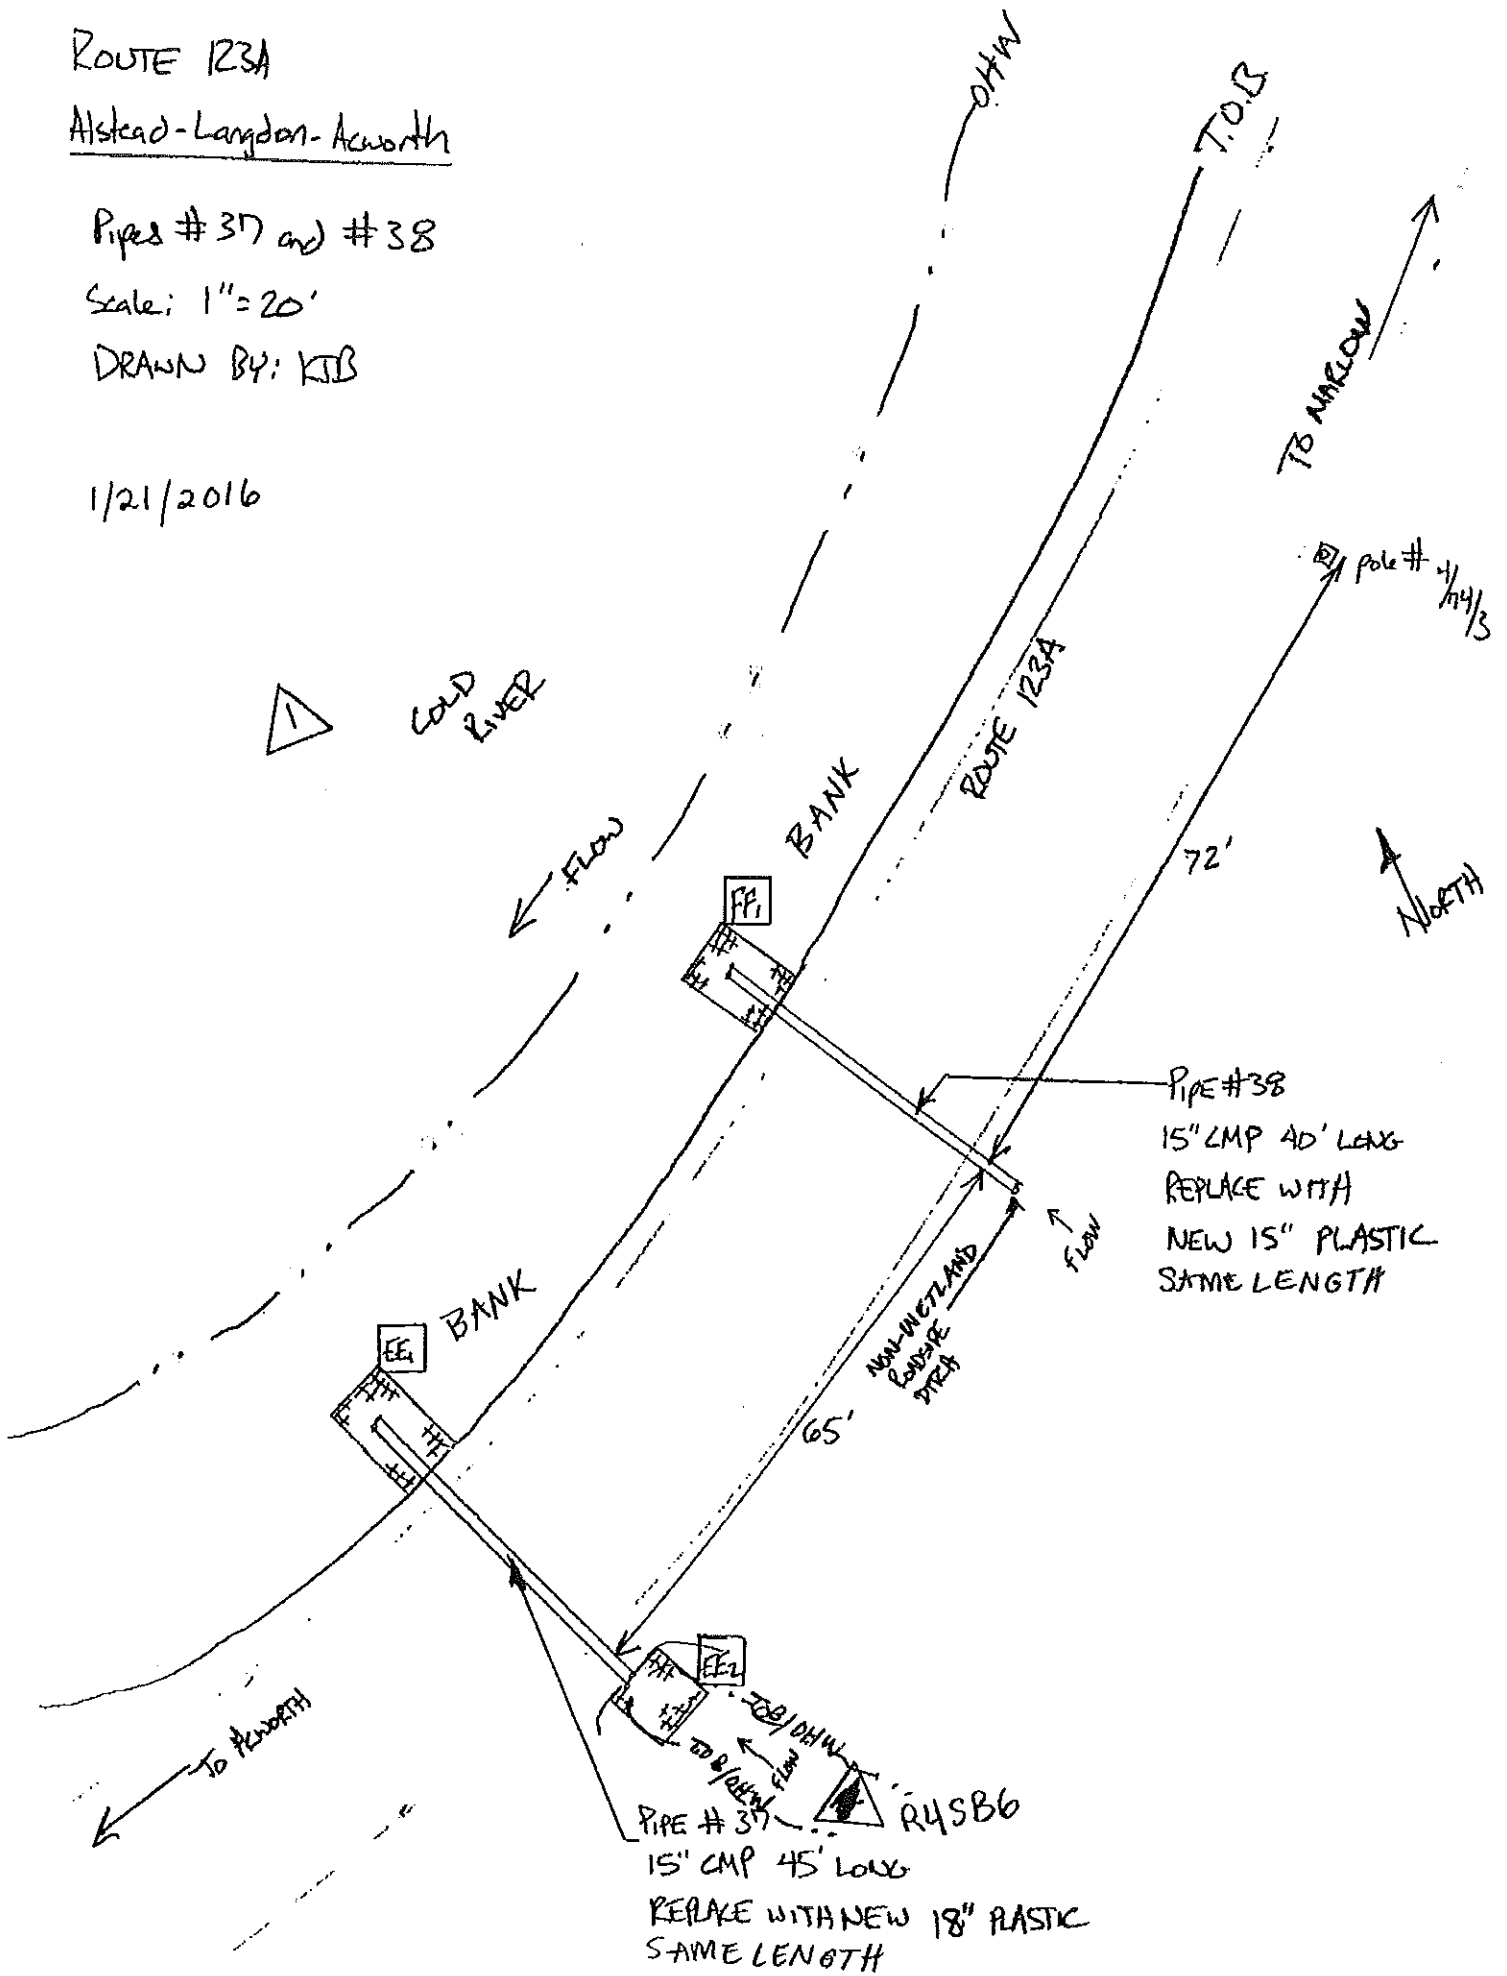 ROUTE 123A
Alstead-Langdon-Acworth
Pipes #37 and #38
Scale: 1"=20'
DRAWN BY: KJB
1/21/2016
OHW
T.O.B
TO MARLOW
pole #
1
COLD
RIVER
ROUTE 123A
BANK
FLOW
72'
NORTH
FF1
PIPE #38
15" CMP 40' LONG
REPLACE WITH
NEW 15" PLASTIC
SAME LENGTH
FLOW
NON-WETLAND
ROADSIDE
DITCH
BANK
EE1
65'
EE2
TOB/OHW
TOB/OHW
FLOW
TO ACWORTH
R4SB6
PIPE #37
15" CMP 45' LONG
REPLACE WITH NEW 18" PLASTIC
SAME LENGTH